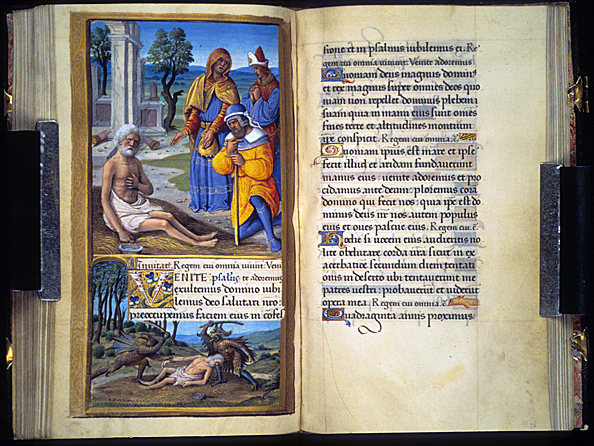 Invitato. Regem cui omnia vivunt. Veni
VENITE psalmꝰ. te adoremus
exultemus domino iubi
lemus deo salutari nr̄o:
preoccupemus faciem eius in cōfes
sione et in psalmis iubilemus ei. Re
gem cui omnia vivunt. Venite adoremus
Quoniam deus magnus dominꝰ
et rex magnus super omnes deos quo
niam non repellet dominus plebem
suam quia in manu eius sunt omēs
fines terre et altitudines montium
ipse conspicit. Regem cui omnia. v̄.
Quoniam ipsius est mare et ipse
fecit illud et aridam fundaverunt
manus eius: venite adoremus et pro
cidamus ante deum: ploremus corā
domino qui fecit nos: quia ipse est do
minus deus nr̄ nos autem populus
eius et oves pascue eius. Regem cui. v̄.
Hodie si vocem eius audieritis no
lite obdurare corda v̄ra sicut in ex
acerbatiōe secundum diem tentati
onis in deserto ubi tentaverunt me
patres vestri: probaverunt et viderūt
opera mea. Regem cui omnia. v̄.
Quadraginta annis proximus